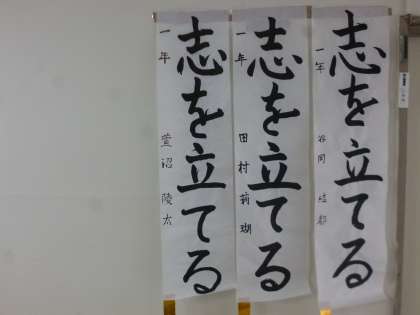 志を立てる
一年 谷岡
志を立てる
一年 田村 莉瑚
志を立てる
一年 萱沼 陵太